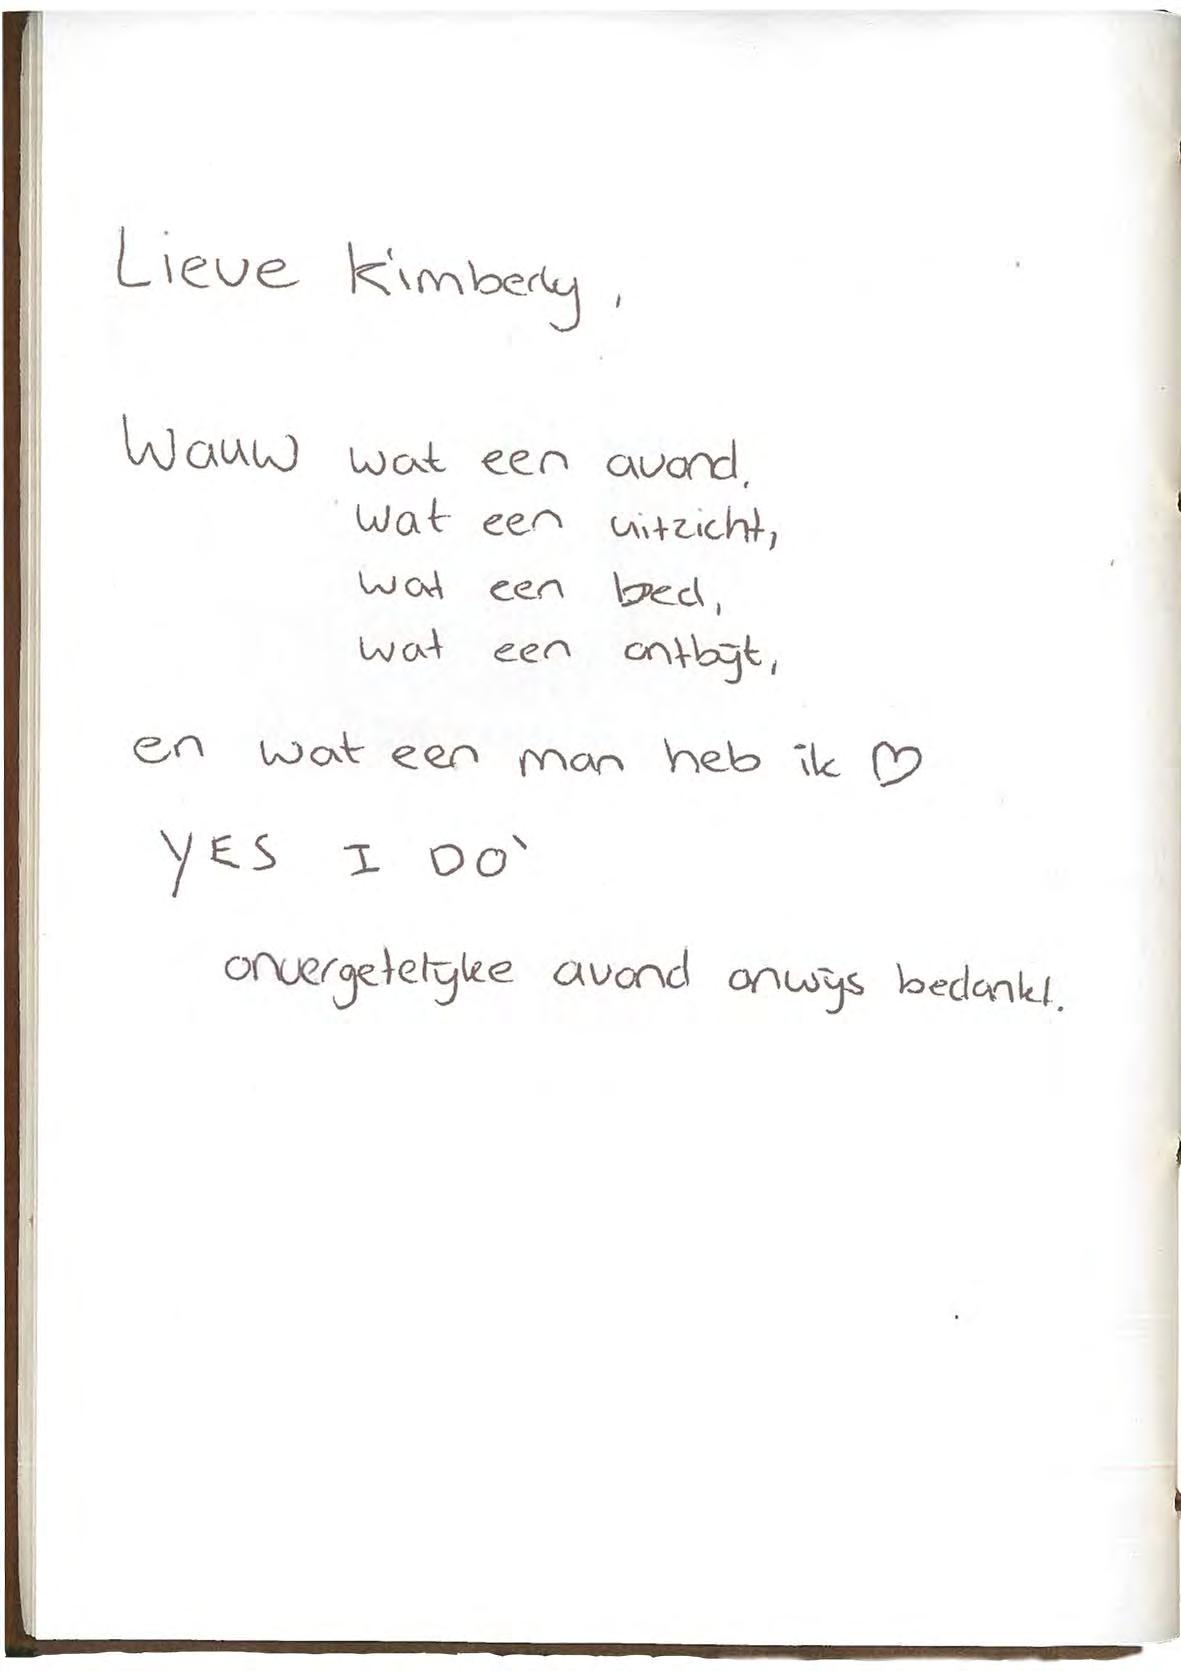 Lieve Kimberly,
Wauw wat een avond,
wat een uitzicht,
wat een bed,
wat een ontbijt,
en wat een man heb ik ♡
YES I DO
onvergetelijke avond onwijs bedankt.